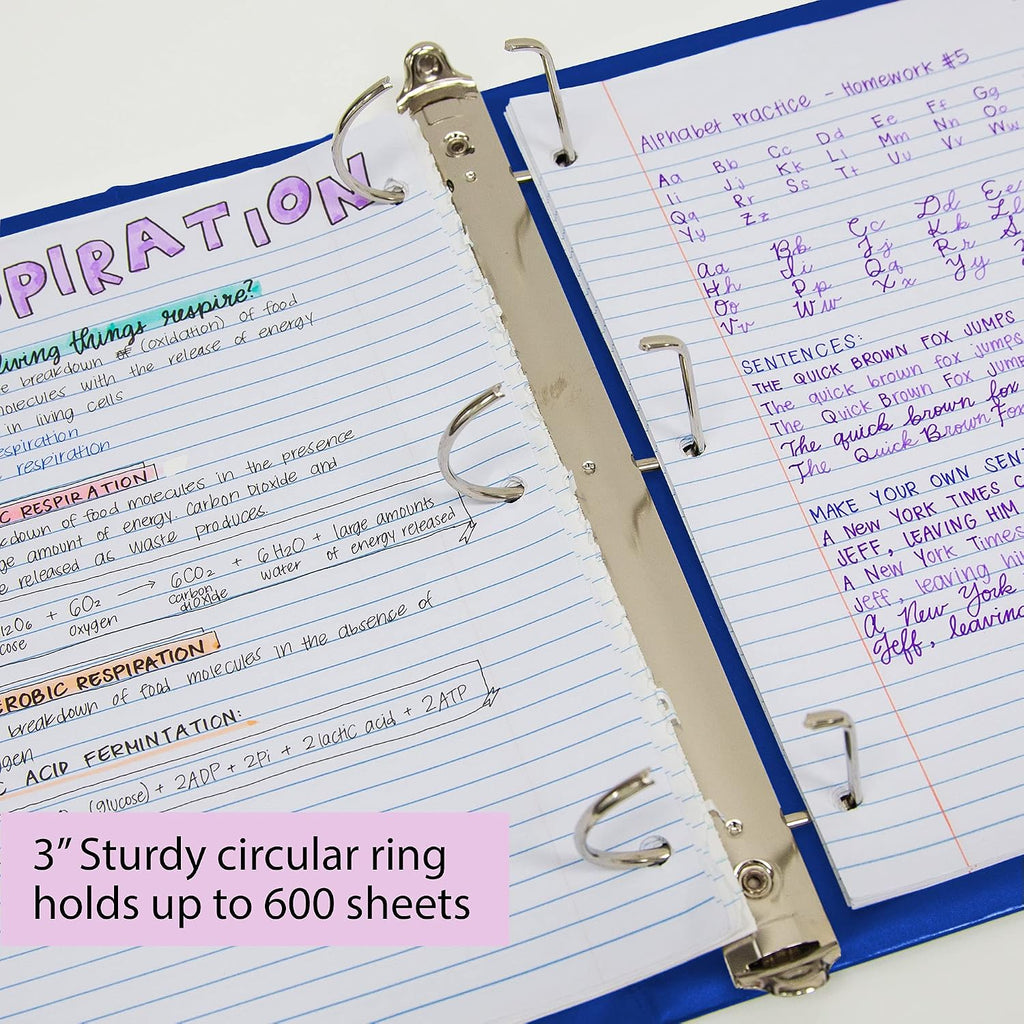 PIRATION
living things respire?
breakdown of (oxidation) of food
molecules with the release of energy
in living cells
respiration
respiration
C RESPIRATION
kdown of food molecules in the presence
ge amount of energy. carbon Dioxide and
e released as waste produces.
12O6 + 6O2 → 6CO2 + 6H2O + large amounts of energy released
cose oxygen carbon dioxide water
EROBIC RESPIRATION
breakdown of food molecules in the absence of
ygen
C ACID FERMINTATION:
(glucose) + 2ADP + 2Pi + 2lactic acid + 2ATP
Alphabet Practice - Homework #5
Aa Bb Cc Dd Ee Ff Gg
Ii Jj Kk Ll Mm Nn Oo
Qq Rr Ss Tt Uu Vv Ww
Yy Zz
Aa Bb Cc Dd Ee
Hh Ii Jj Kk Ll
Oo Pp Qq Rr S
Vv Ww Xx Yy
SENTENCES:
THE QUICK BROWN FOX JUMPS
The quick brown fox jumps
The Quick Brown Fox Jump
The quick brown fox
The Quick Brown Fox
MAKE YOUR OWN SENT
A NEW YORK TIMES C
JEFF, LEAVING HIM
A New York Times
Jeff, leaving hi
A New York
Jeff, leaving
3” Sturdy circular ring
holds up to 600 sheets